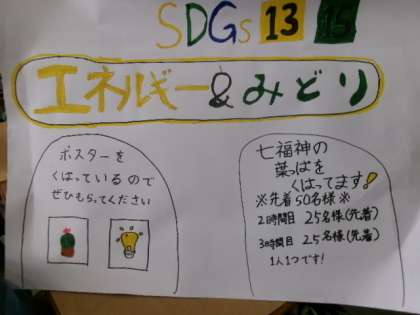 SDGs 13 15
エネルギー&みどり
ポスターを
くばっているので
ぜひもらってください
七福神の
葉っぱを
くばってます!
※先着50名様※
2時間目 25名様(先着)
3時間目 25名様(先着)
1人1つです!